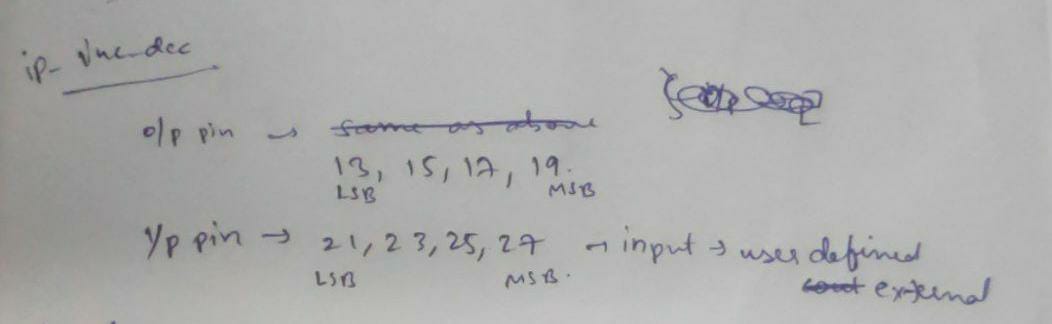 ip-
o/p pin → same as above
13, 15, 17, 19.
LSB MSB
I/p pin → 21, 23, 25, 27 → input → user defined
LSB MSB. external